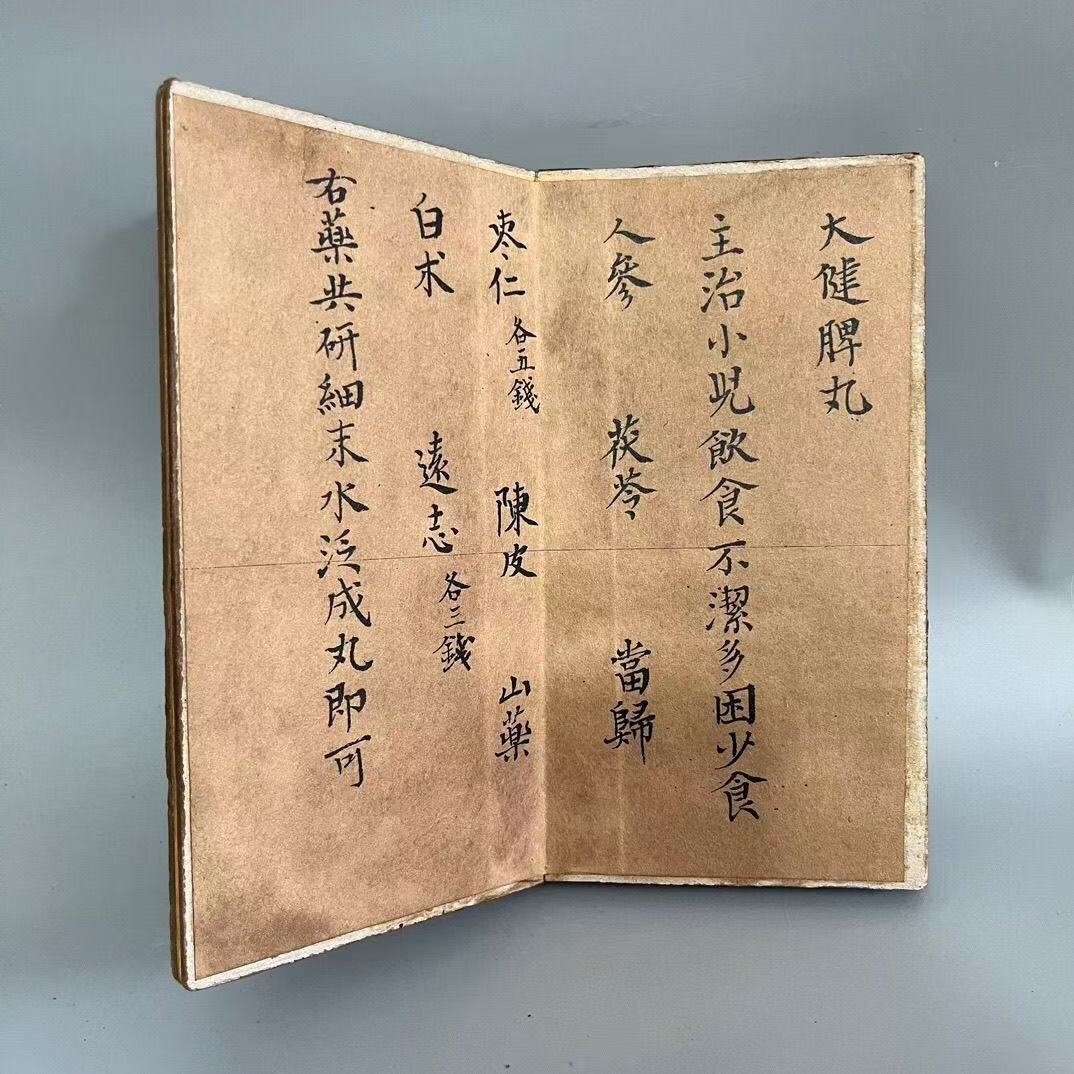 大健脾丸
主治小児飲食不潔多困少食
人參 茯苓 當歸
棗仁 各五錢 陳皮 山藥
白术 遠志 各三錢
右藥共研細末水泛成丸即可